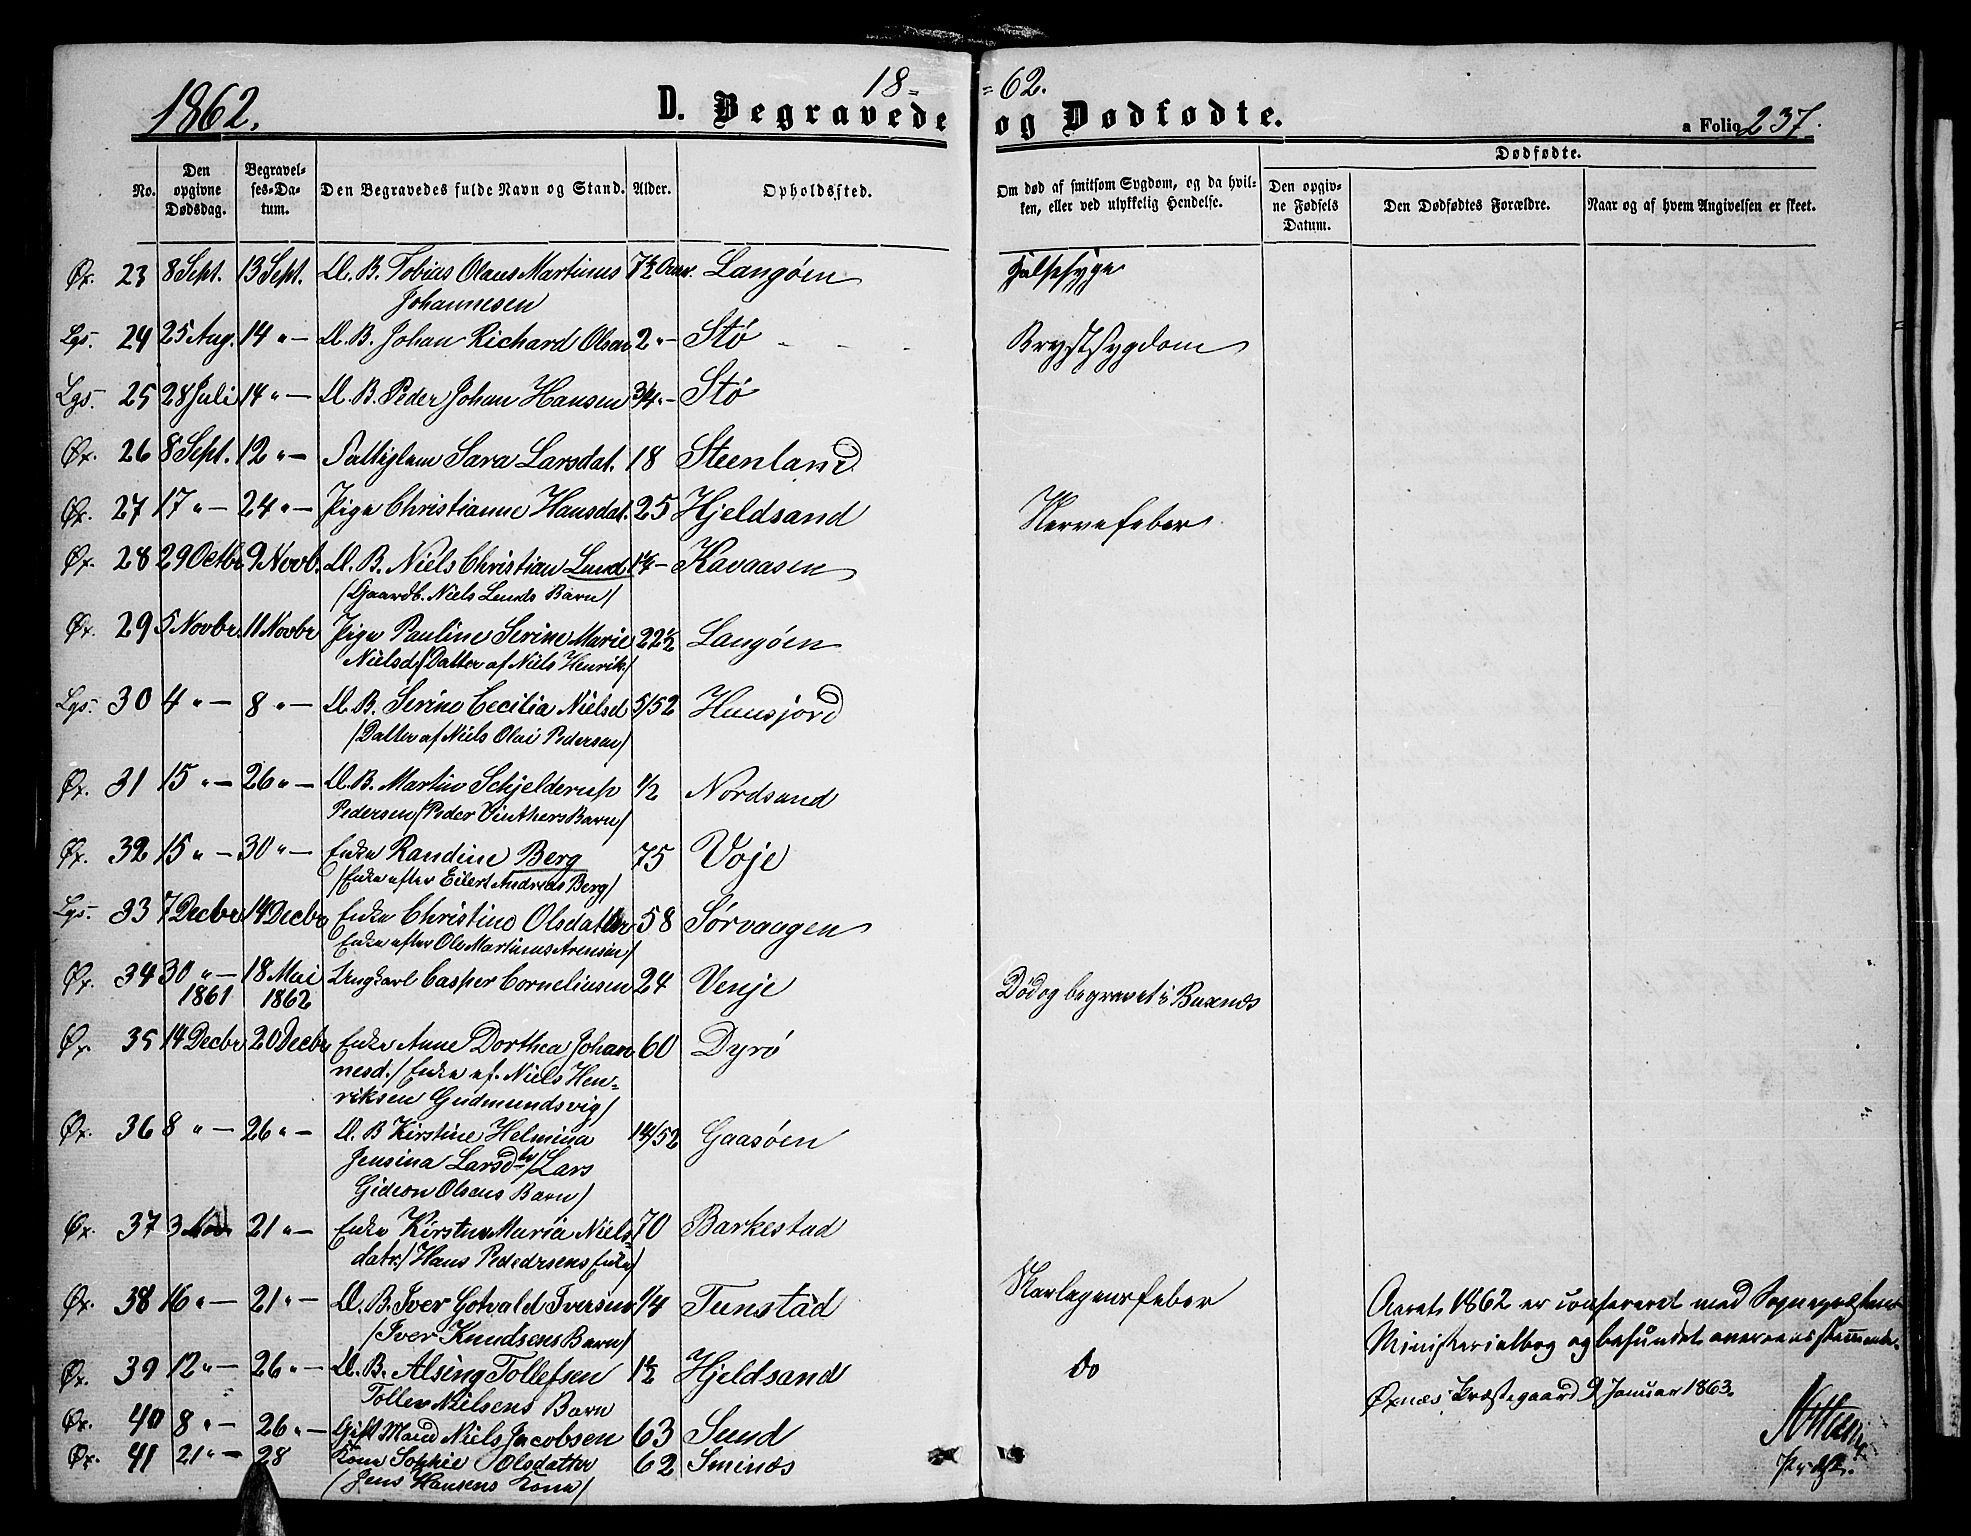 1862.
18=
=62.
D. Begravede
og Dødfødte.
a Folio 237.
No.
Den opgivne Dødsdag.
Begravelses-Datum.
Den Begravedes fulde Navn og Stand.
Alder.
Opholdssted.
Om død af smitsom Sygdom, og da hvilken, eller ved ulykkelig Hendelse.
Dødfødte.
Den opgivne Fødsels Datum.
Den Dødfødtes Forældre.
Naar og af hvem Angivelsen er skeet.
Øx. 23 8 Sept. 13 Sept. U. B. Tobias Olaus Martinus 7½ Aar. Langøen Halssyge
Johannesen
Lgs. 24 25 Aug. 14 " — U. B. Johan Richard Olsen 2 " — Stø Brystsygdom
Lgs. 25 28 Juli 14 " — U. B. Peder Johan Hansen 3/4 " — Stø
Øx. 26 8 Sept. 12 " — Fattiglem Sara Larsdat. 18 Steenland
Øx. 27 17 " — 24 " — Pige Christianne Hansdat. 25 Hjeldsand Nervefeber
Øx. 28 29 Octbr 9 Novb. U. B. Niels Christian Lund 1¼ — Kavaasen
/Gaardb. Niels Lunds Barn/
Øx. 29 5 Novbr 11 Novbr Pige Pauline Serine Marie 22½ Langøen
Nielsd /Datter af Niels Henrik./
Lgs. 30 4 " — 8 " — U. B. Serine Cecilia Nielsd 5/52 Hunsjord
/Datter af Niels Olai Pedersen/
Øx. 31 15 " — 26 " — U. B. Martin Schjelderup 1/2 Nordsand
Pedersen /Peder Vinthers Barn/
Øx. 32 15 " — 30 " — Enke Randine Berg 75 Voje
/Enke efter Eilert Andreas Berg/
Lgs. 33 7 Decbr 14 Decbr Enke Christine Olsdatter 58 Sørvaagen
Enke efter Ole Martinus Arensen/
Øx. 34 30 " — 18 Mai Ungkarl Casper Corneliusen 24 Venje Død og begravet i Buxnæs
1861 1862
Øx. 35 14 Decbr 20 Decbr Enke Anne Dorthea Johan 60 Dyrø
nesd. /Enke ef. Niels Hen=
riksen Gudmundsvig/
Øx. 36 8 " — 26 " — U. B Kirstine Helmina 14/52 Gaasøen
Jensina Larsdtr /Lars
Gideon Olsens Barn/
Øx. 37 3 21 " — Enke Kirstna Maria Niels= 70 Barkestad
datr. /Hans Pededrsens Enke/
Øx. 38 16 " — 21 " — U. B. Iver Gotvald Iversen 1/4 Tunstad Skarlagensfeber
/Iver Knudsens Barn/
Øx. 39 12 " — 26 " — U. B. Alsing Tollefsen 1½ Hjeldsand do
Tollev Nielsens Barn
Øx. 40 8 " — 26 " — Gift Mand Niels Jacobsen 63 Sund
Øx. 41 21 " — 28 Kone Sophie Olsdatter 62 Sminæs
/Jens Hansens Kone/
Aaret 1862 er confereret med Sognepræstens
Ministerialbog og befundet overensstemmende.
Øxnæs Præstegaard 9 Januar 1863.